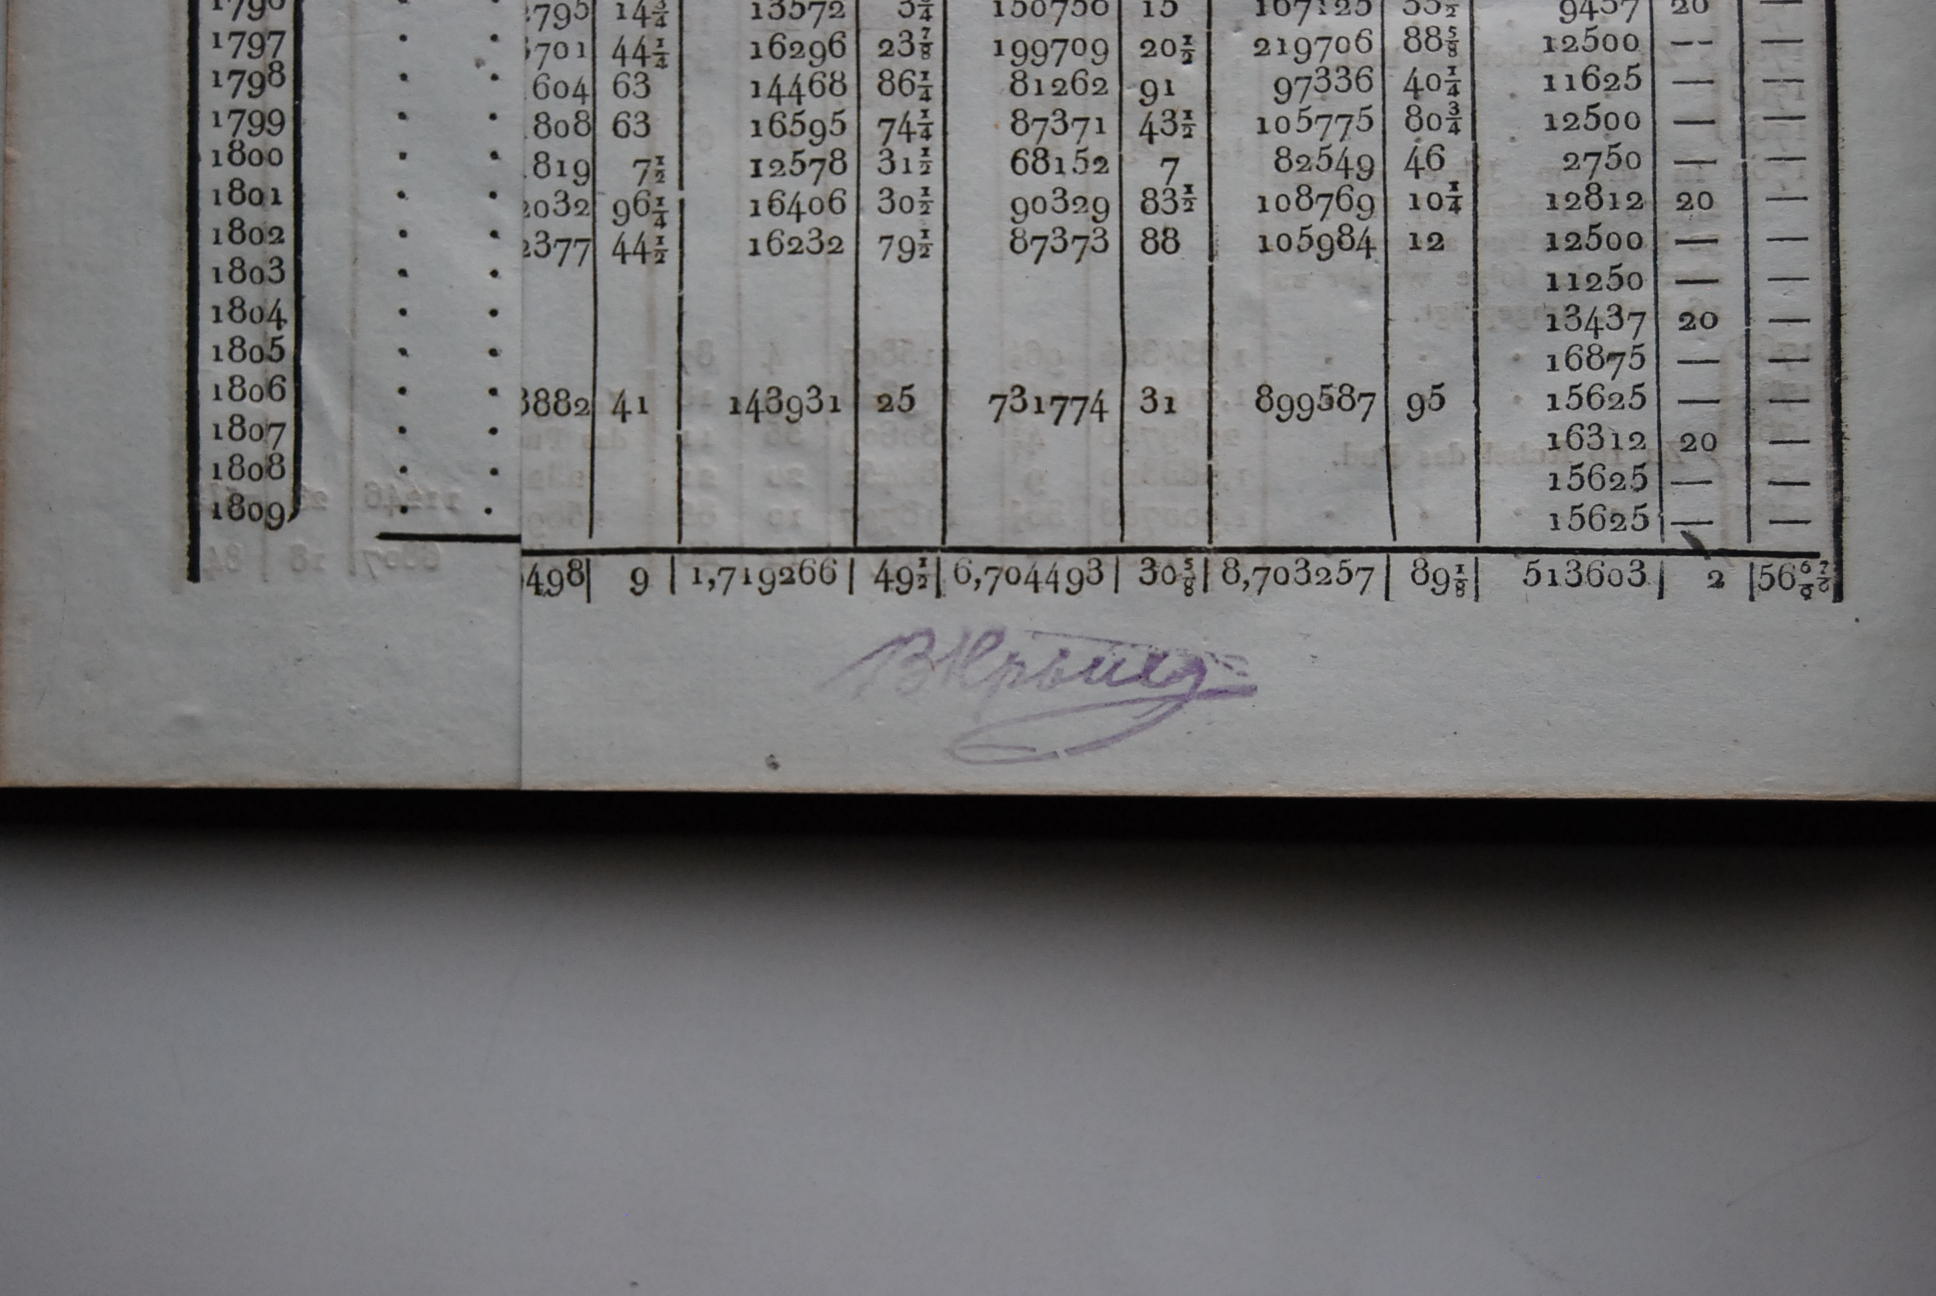 795 14¾ 13572 150750 15 9437 20 —
1797 . . 701 44¼ 16296 23⅞ 199709 20½ 219706 88⅝ 12500 -- —
1798 . . 604 63 14468 86¼ 81262 91 97336 40¼ 11625 — —
1799 . . 808 63 16595 74¼ 87371 43½ 105775 80¾ 12500 — —
1800 . . 819 7½ 12578 31½ 68152 7 82549 46 2750 — —
1801 . . 2032 96¼ 16406 30½ 90329 83½ 108769 10¼ 12812 20 —
1802 . . 2377 44½ 16232 79½ 87373 88 105984 12 12500 — —
1803 . . 11250 — —
1804 . . 13437 20 —
1805 . . 16875 — —
1806 . . 3882 41 143931 25 731774 31 899587 95 15625 — —
1807 . . 16312 20 —
1808 . . 15625 — —
1809 . . 15625 — —
498 9 1,719266 49½ 6,704493 30⅝ 8,703257 89⅛ 513603 2